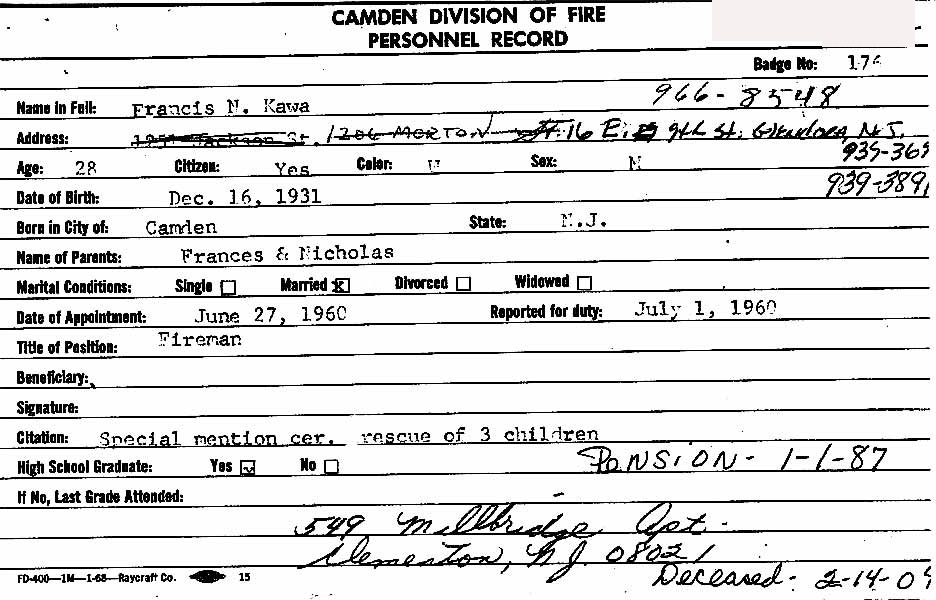 CAMDEN DIVISION OF FIRE
PERSONNEL RECORD
Badge No: 176
966-8548
Name in Full: Francis N. Kawa
Address: Jackson St. 1206 MORTON 16 E. 9th St. Glendora, N.J.
939-369
Age: 28 Citizen: Yes Color: W Sex: M
939-3891
Date of Birth: Dec. 16, 1931
Born in City of: Camden State: N.J.
Name of Parents: Frances & Nicholas
Marital Conditions: Single Married Divorced Widowed
Date of Appointment: June 27, 1960 Reported for duty: July 1, 1960
Title of Position: Fireman
Beneficiary:
Signature:
Citation: Special mention cer. rescue of 3 children
High School Graduate: Yes No PENSION - 1-1-87
If No, Last Grade Attended:
549 Millbridge Apt.
Clementon, N.J. 08021
FD-400—1M—1-68—Raycraft Co. 15
Deceased - 2-14-09